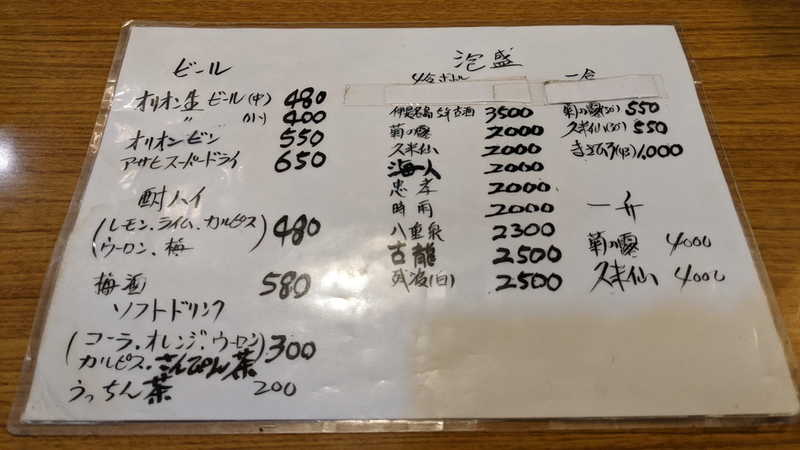 ビール
オリオン生ビール(中) 480
〃 (小) 400
オリオンビン 550
アサヒスーパードライ 650
酎ハイ
(レモン、ライム、カルピス
ウーロン、梅) 480
梅酒 580
ソフトドリンク
(コーラ、オレンジ、ウーロン
カルピス、さんぴん茶) 300
うっちん茶 200
泡盛
4合ボトル
伊是名島 5年古酒 3500
菊の露 2000
久米仙 2000
海人 2000
忠孝 2000
時雨 2000
八重泉 2300
古龍 2500
残波(白) 2500
一合
菊の露(30°) 550
久米仙(30°) 550
1,000
一升
菊の露 4000
久米仙 4000